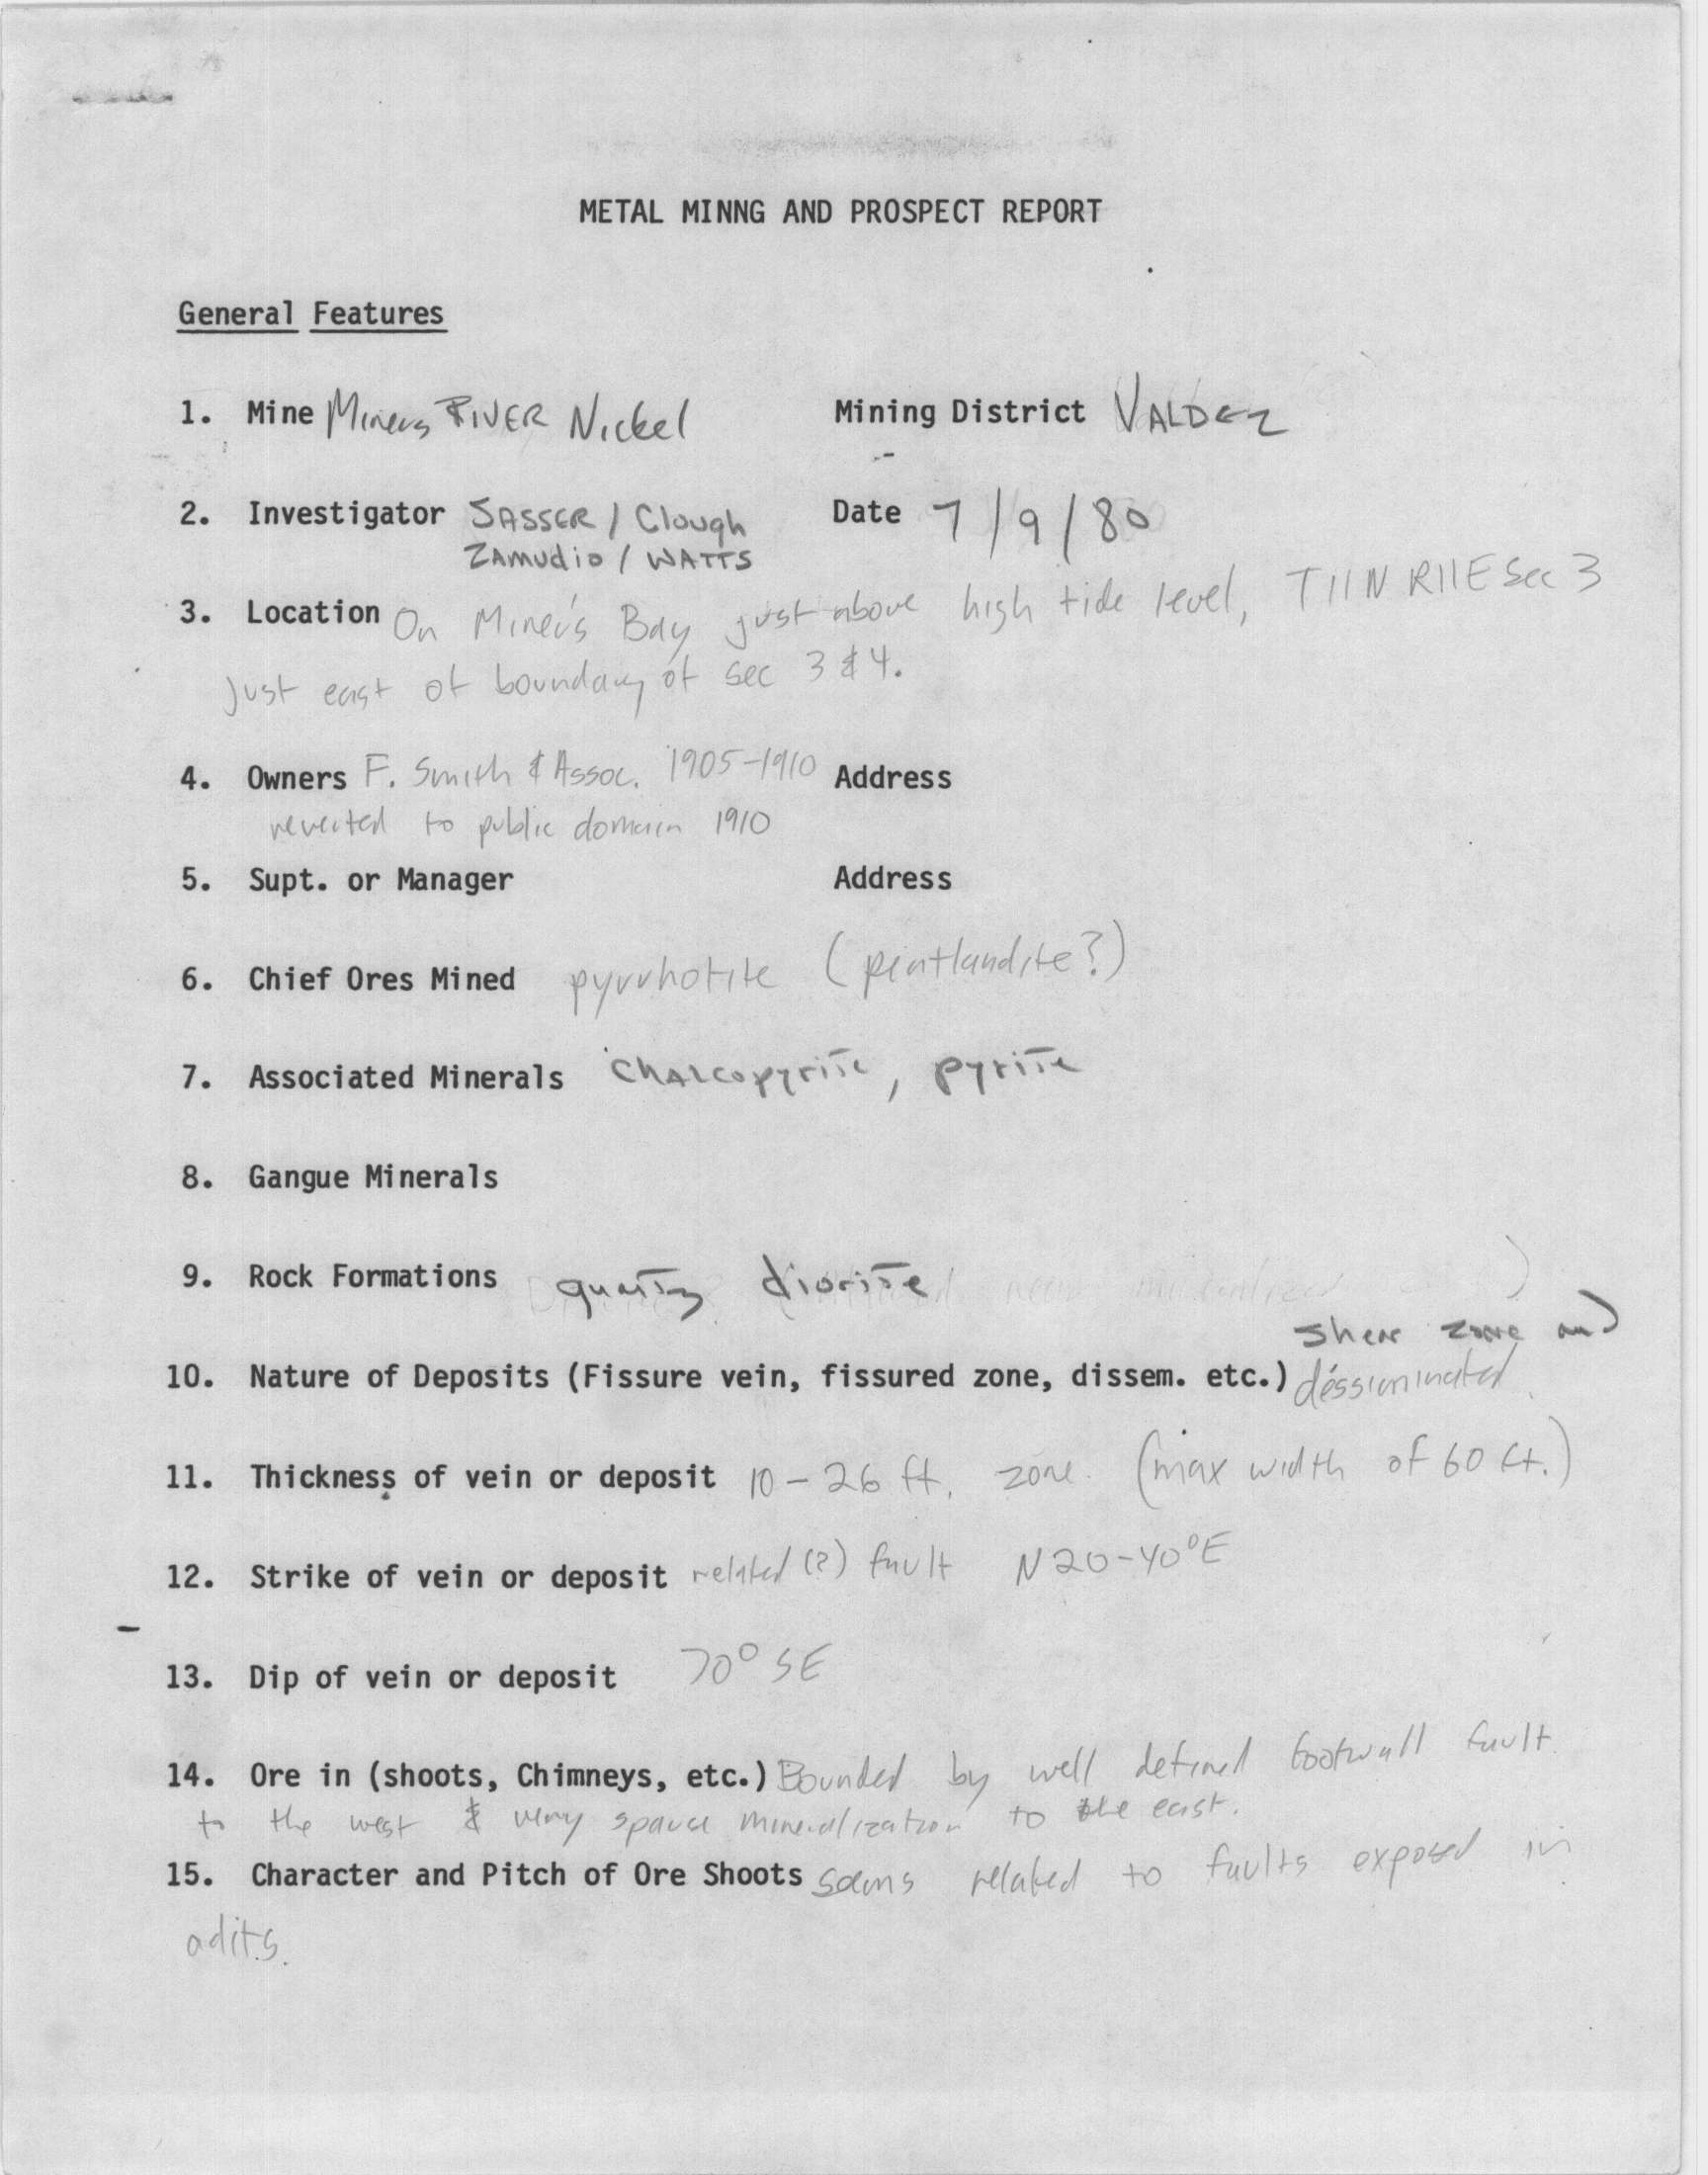 METAL MINNG AND PROSPECT REPORT
General Features
1. Mine Miners RIVER Nickel Mining District VALDEZ
2. Investigator SASSER / Clough Date 7/9/80
ZAmudio / WATTS
3. Location On Miner's Bay just above high tide level, T11N R11E Sec 3
just east of boundary of sec 3 & 4.
4. Owners F. Smith & Assoc. 1905-1910 Address
reverted to public domain 1910
5. Supt. or Manager Address
6. Chief Ores Mined pyrrhotite (pentlandite?)
7. Associated Minerals Chalcopyrite, pyrite
8. Gangue Minerals
9. Rock Formations quartz diorite
shear zone and
10. Nature of Deposits (Fissure vein, fissured zone, dissem. etc.) dessiminated
11. Thickness of vein or deposit 10-26 ft. zone. (max width of 60 ft.)
12. Strike of vein or deposit related (?) fault N20-40°E
13. Dip of vein or deposit 70° SE
14. Ore in (shoots, Chimneys, etc.) Bounded by well defined footwall fault
to the west & very sparce mineralization to the east.
15. Character and Pitch of Ore Shoots seems related to faults exposed in
adits.